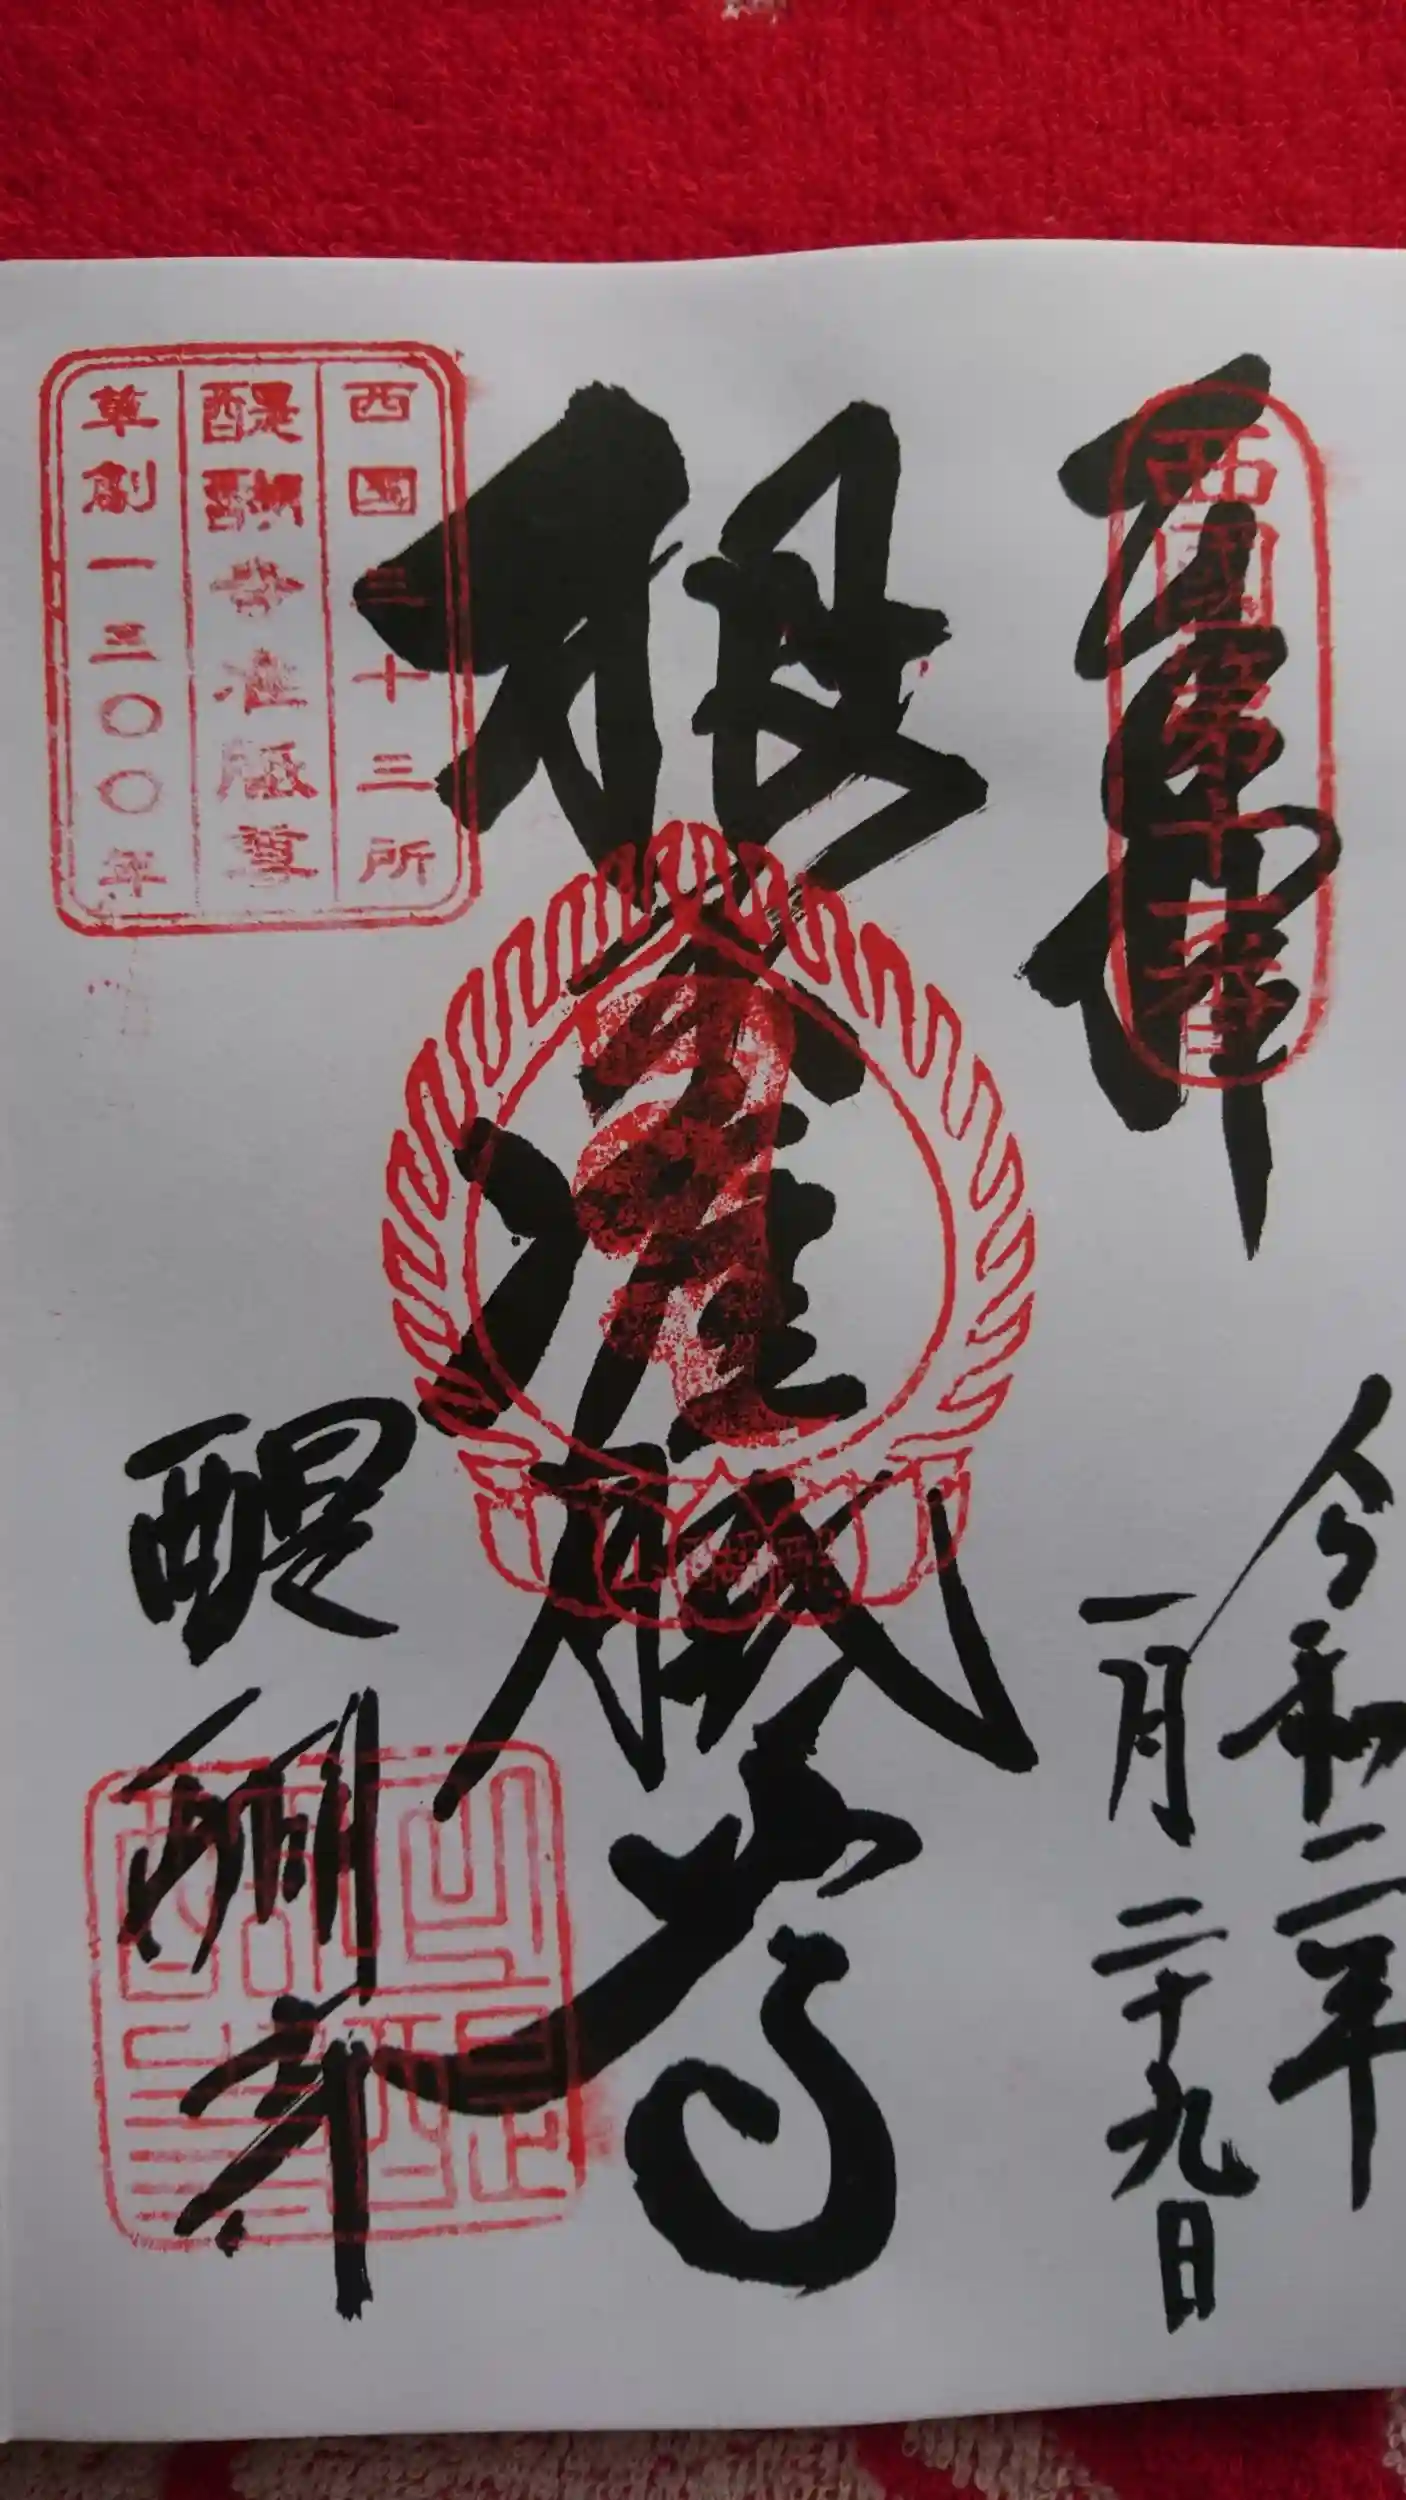 奉拝
西國第十一番
令和二年
一月二十九日
根本准胝尊
醍醐山
醍醐寺
西国三十三所
醍醐寺准胝尊
草創一三〇〇年